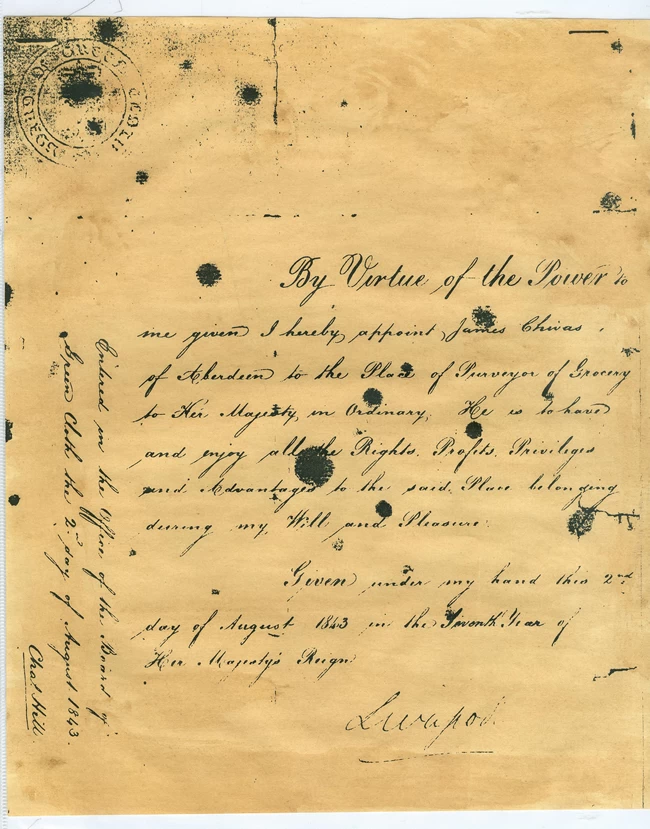 By Virtue of the Power to
me given I hereby appoint James Chivas,
of Aberdeen to the Place of Purveyor of Grocery
to Her Majesty in Ordinary. He is to have
and enjoy all the Rights. Profits. Privileges
and Advantages to the said Place belonging
during my Will and Pleasure.
Given under my hand this 2nd
day of August 1843 in the Year of
Her Majesty's Reign
Liverpool
Entered in the Office of the Board of
Green Cloth the 2nd day of August 1843.
Chas. Hill